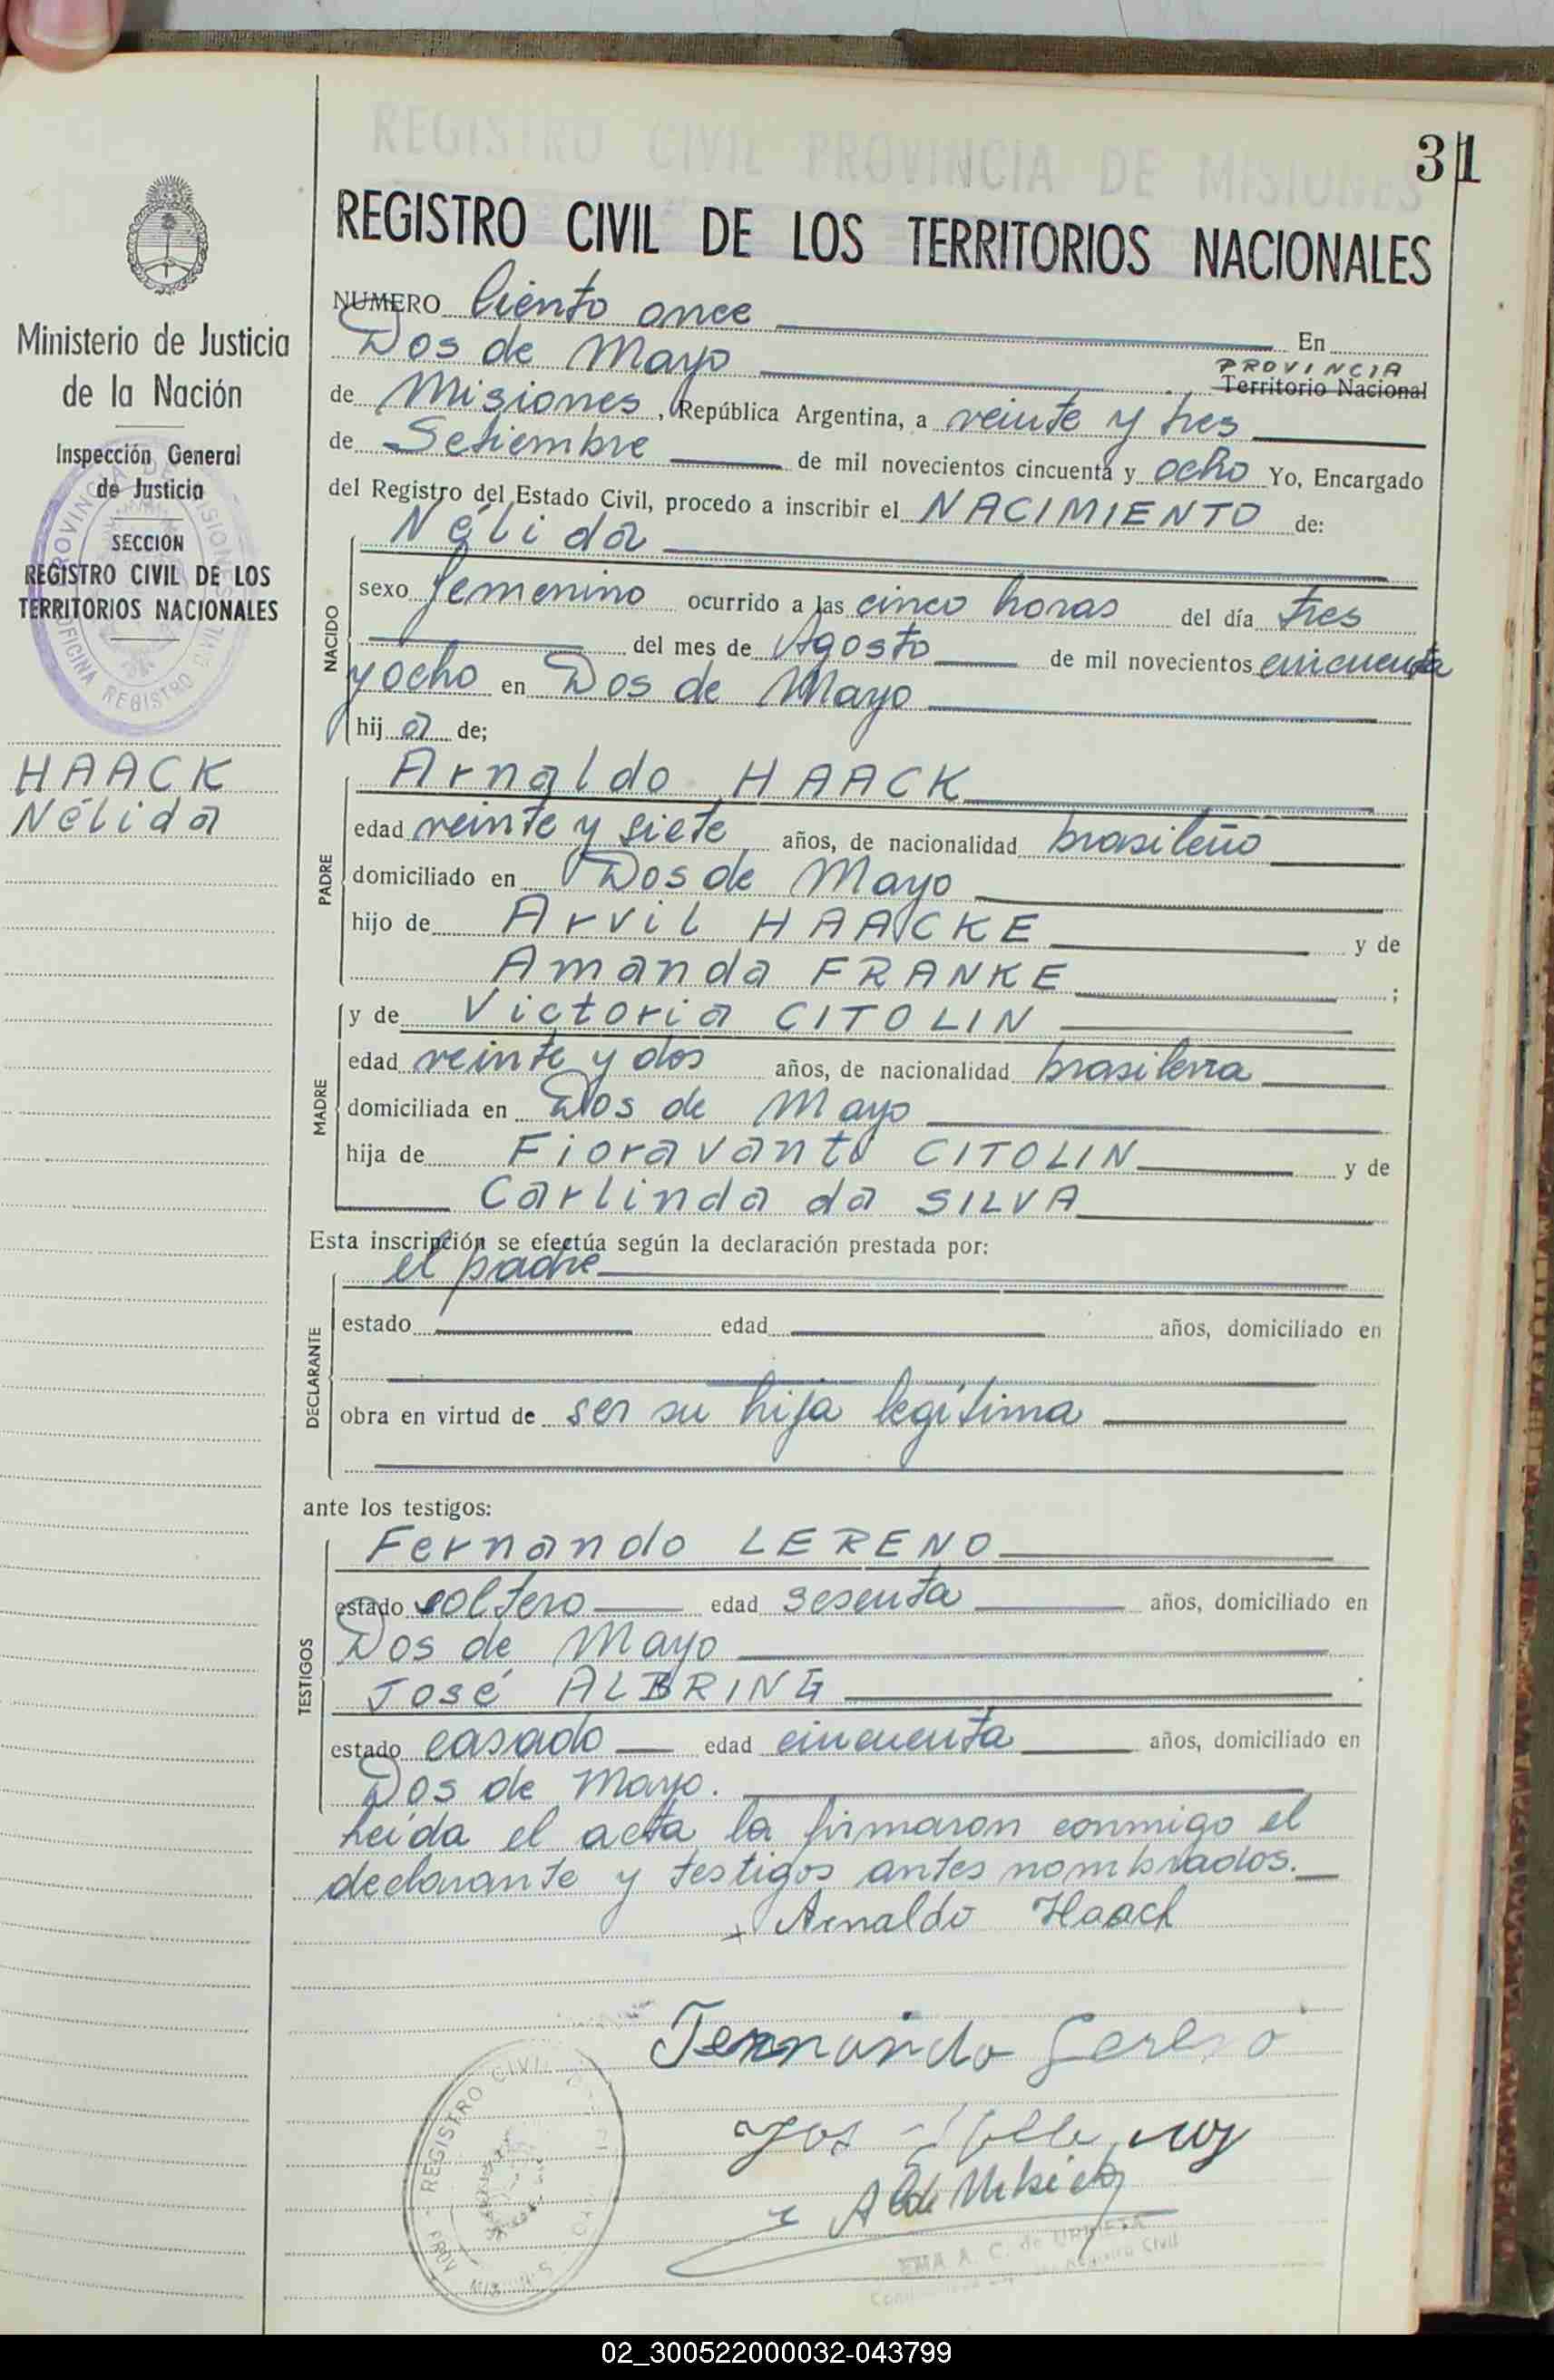 REGISTRO CIVIL PROVINCIA DE MISIONES
31
REGISTRO CIVIL DE LOS TERRITORIOS NACIONALES
Ministerio de Justicia
de la Nación
Inspección General
de Justicia
SECCIÓN
REGISTRO CIVIL DE LOS
TERRITORIOS NACIONALES
PROVINCIA DE MISIONES
OFICINA REGISTRO CIVIL
HAACK
Nélida
NUMERO Ciento once En
Dos de Mayo PROVINCIA
Territorio Nacional
de Misiones, República Argentina, a veinte y tres
de Setiembre de mil novecientos cincuenta y ocho Yo, Encargado
del Registro del Estado Civil, procedo a inscribir el NACIMIENTO de:
NACIDO
Nélida
sexo femenino ocurrido a las cinco horas del día tres
del mes de Agosto de mil novecientos cincuenta
y ocho en Dos de Mayo
hij a de;
PADRE
Arnaldo HAACK
edad veinte y siete años, de nacionalidad brasileño
domiciliado en Dos de Mayo
hijo de Arvil HAACKE y de
Amanda FRANKE ;
MADRE
y de Victoria CITOLIN
edad veinte y dos años, de nacionalidad brasilera
domiciliada en Dos de Mayo
hija de Fioravanto CITOLIN y de
Carlinda da SILVA
Esta inscripción se efectúa según la declaración prestada por:
DECLARANTE
el padre
estado edad años, domiciliado en
obra en virtud de ser su hija legítima
ante los testigos:
TESTIGOS
Fernando LERENO
estado soltero edad sesenta años, domiciliado en
Dos de Mayo
José ALBRING
estado casado edad cincuenta años, domiciliado en
Dos de Mayo.
Leída el acta la firmaron conmigo el
declarante y testigos antes nombrados.
x Arnaldo Haack
Fernando Lereno
REGISTRO CIVIL
PROV. MISIONES
EMA A. C. de URBIETA
Registro Civil
02_300522000032-043799